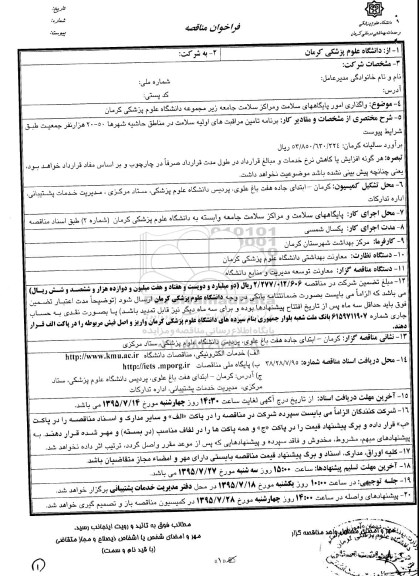 تاریخ:
شماره:
پیوست:
فراخوان مناقصه
۱- از: دانشگاه علوم پزشکی کرمان
۲- به شرکت:
۳- مشخصات شرکت:
نام و نام خانوادگی مدیرعامل:
شماره ملی:
آدرس:
کد پستی:
۴- موضوع: واگذاری امور پایگاههای سلامت ومراکز سلامت جامعه زیر مجموعه دانشگاه علوم پزشکی کرمان
۵- شرح مختصری از مشخصات و مقادیر کار: برنامه تامین مراقبت های اولیه سلامت در مناطق حاشیه شهرها ۵۰-۲۰ هزارنفر جمعیت طبق
شرایط پیوست
برآورد سالیانه کرمان: ۵۳/۸۵۰/۶۳۰/۲۲۴ ریال
تبصره: هر گونه افزایش یا کاهش نرخ خدمات و مبالغ قرارداد در طول مدت قرارداد صرفاً در چارچوب و بر اساس مفاد قرارداد خواهد بود،
یعنی چنانچه پیش بینی نشده باشد موضوعیت نخواهد داشت.
۶- محل تشکیل کمیسیون: کرمان – ابتدای جاده هفت باغ علوی، پردیس دانشگاه علوم پزشکی، ستاد مرکزی ، مدیریت خدمات پشتیبانی،
اداره تدارکات
۷- محل اجرای کار: پایگاههای سلامت و مراکز سلامت جامعه وابسته به دانشگاه علوم پزشکی کرمان (شماره ۲) طبق اسناد مناقصه
۸- مدت اجرای کار: یکسال شمسی
۹- کارفرما: مرکز بهداشت شهرستان کرمان
۱۰- دستگاه نظارت: معاونت بهداشتی دانشگاه علوم پزشکی کرمان
۱۱- دستگاه مناقصه گزار: معاونت توسعه مدیریت و منابع دانشگاه
۱۲- مبلغ تضمین شرکت در مناقصه ۲/۲۷۷/۰۱۲/۶۰۶ ریال (دو میلیارد و دویست و هفتاد و هفت میلیون و دوازده هزار و ششصد و شش ریال)
می باشد که الزاماً می بایست بصورت ضمانتنامه بانکی در وجه دانشگاه علوم پزشکی کرمان ارسال شود (توضیحاً مدت اعتبار تضمین
فوق باید حداقل سه ماه پس از تاریخ افتتاح پیشنهادها بوده و برای سه ماه دیگر نیز قابل تمدید باشد)، یا بصورت نقدی به حساب
جاری شماره ۶۱۵۹۷۱۱۹۰۷ بانک ملت شعبه بلوار جمهوری بنام سپرده های دانشگاه علوم پزشکی کرمان واریز و اصل فیش مربوطه را در پاکت الف قرار
دهند.
۱۳- نشانی مناقصه گزار: کرمان – ابتدای جاده هفت باغ علوی، پردیس دانشگاه علوم پزشکی، ستاد مرکزی
۱۴- محل دریافت اسناد مناقصه شماره: ۳۸/۲۸/۷/۹۵
الف) خدمات الکترونیکی، مناقصات دانشگاه http://www.kmu.ac.ir
ب) پایگاه ملی مناقصات http://iets .mporg.ir
ج) آدرس: کرمان – ابتدای هفت باغ علوی، پردیس دانشگاه علوم پزشکی، ستاد
مرکزی، مدیریت خدمات پشتیبانی، اداره تدارکات
۱۵- مهلت دریافت اسناد: از تاریخ درج آگهی لغایت ساعت ۱۴:۳۰ روز چهارشنبه مورخ ۱۳۹۵/۷/۱۴ می باشد.
۱۶- شرکت کنندگان الزاماً می بایست سپرده شرکت در مناقصه را در پاکت «الف» و سایر مدارک و اسناد مناقصه را در پاکت
«ب» قرار داده و برگ پیشنهاد قیمت را در پاکت «ج» و همه پاکت ها را در لفاف مناسب (در بسته) و مهر شده قرار دهند. به
پیشنهادهای مبهم، مشروط، مخدوش و فاقد سپرده و پیشنهادهایی که پس از موعد مقرر واصل گردد، ترتیب اثر داده نخواهد شد.
۱۷- کلیه اوراق، مدارک، اسناد و برگ پیشنهاد قیمت مناقصه بایستی دارای مهر و امضاء مجاز متقاضیان باشد.
۱۸- آخرین مهلت تسلیم پیشنهادها: ساعت ۱۵:۰۰ روز سه شنبه مورخ ۱۳۹۵/۷/۲۷ می باشد.
۱۹- جلسه توجیهی: در ساعت ۱۰:۰۰ روز یکشنبه مورخ ۱۳۹۵/۷/۱۸ در محل دفتر مدیریت خدمات پشتیبانی برگزار خواهد شد.
۲۰- پیشنهادهای واصله در ساعت ۱۴:۰۰ روز چهارشنبه مورخ ۱۳۹۵/۷/۲۸ در کمیسیون مناقصه باز و تصمیم گیری خواهد شد.
مطالب فوق به تائید و رویت اینجانب رسید.
مهر و امضای شخص یا اشخاص ذیصلاح و مجاز متقاضی
(با قید نام و سمت)